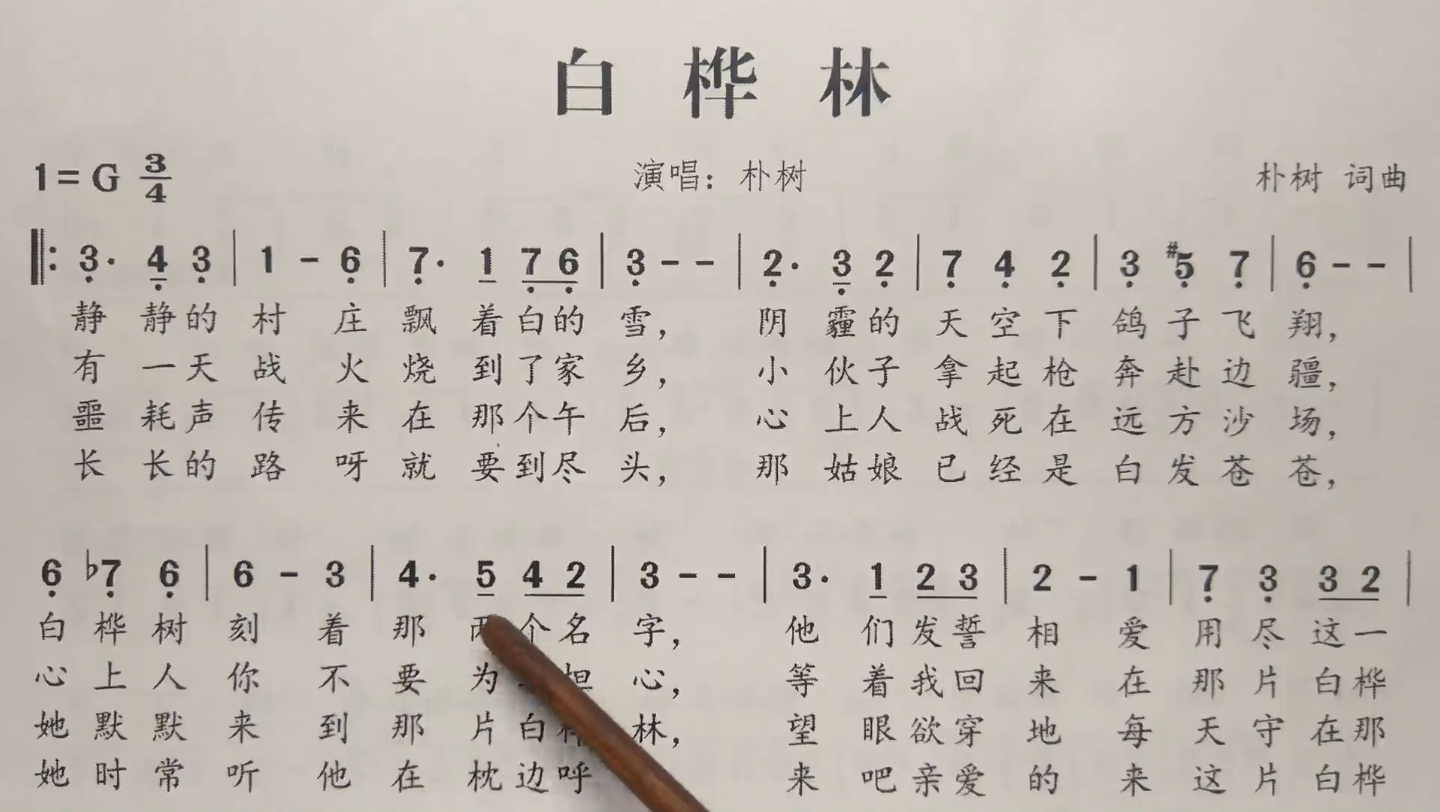 白桦林
1=G 3/4 演唱：朴树 朴树 词曲
‖: 3· 4 3 | 1 - 6 | 7· 1 7 6 | 3 - - | 2· 3 2 | 7 4 2 | 3 #5 7 | 6 - - |
静 静的 村 庄 飘 着白的 雪， 阴 霾的 天空下 鸽子飞 翔，
有 一天 战 火 烧 到了家 乡， 小 伙子 拿起枪 奔赴边 疆，
噩 耗声 传 来 在 那个午 后， 心 上人 战死在 远方沙 场，
长 长的 路 呀 就 要到尽 头， 那 姑娘 已经是 白发苍 苍，
6 ♭7 6 | 6 - 3 | 4· 5 4 2 | 3 - - | 3· 1 2 3 | 2 - 1 | 7 3 3 2 |
白桦树 刻 着 那 个名 字， 他 们发誓 相 爱 用尽这一
心上人 你 不 要 为 心， 等 着我回 来 在 那片白桦
她默默 来 到 那 片白 林， 望 眼欲穿 地 每 天守在那
她时常 听 他 在 枕边呼 来 吧亲爱 的 来 这片白桦